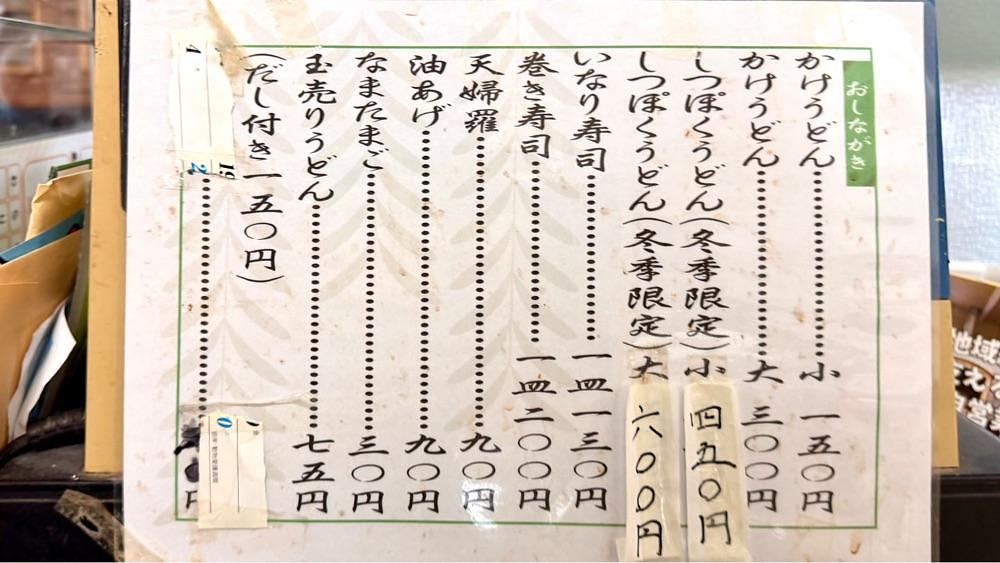 おしながき
かけうどん 小 一五〇円
かけうどん 大 三〇〇円
しっぽくうどん(冬季限定)小 四五〇円
しっぽくうどん(冬季限定)大 六〇〇円
いなり寿司 一皿一三〇円
巻き寿司 一皿二〇〇円
天婦羅 九〇円
油あげ 九〇円
なまたまご 三〇円
玉売りうどん 七五円
(だし付き一五〇円)
円
地域